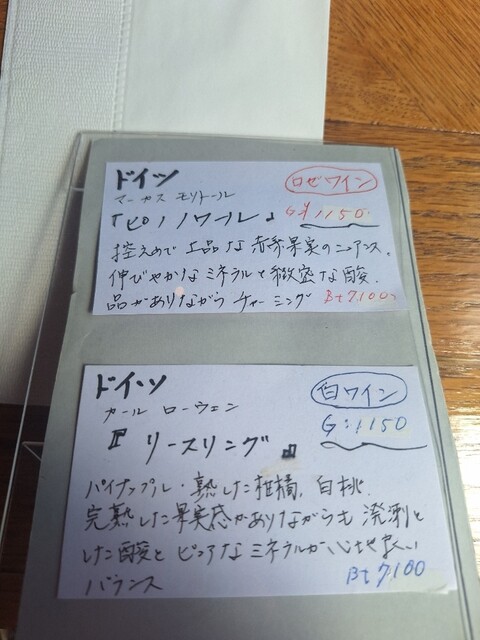 ドイツ
ロゼワイン
マーカス モリトール
『ピノノワール』 G¥1150
控えめで上品な赤系果実のニュアンス。
伸びやかなミネラルと緻密な酸。
品がありながらチャーミング Bt 7,100
ドイツ
白ワイン
カール ローウェン
G:1150
『リースリング』
パイナップル・熟した柑橘、白桃、
完熟した果実感がありながらも溌剌と
した酸とピュアなミネラルが心地よい
バランス
Bt 7,100